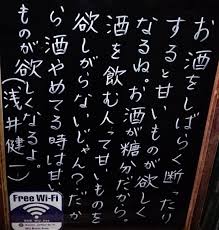 お酒をしばらく断ったり
すると甘いものが欲しく
なるね。お酒が糖分だから。
酒を飲む人って甘いものを
欲しがらないじゃん？だか
ら酒やめてる時は甘い
ものが欲しくなるよ。
（浅井健一）
Free Wi-Fi